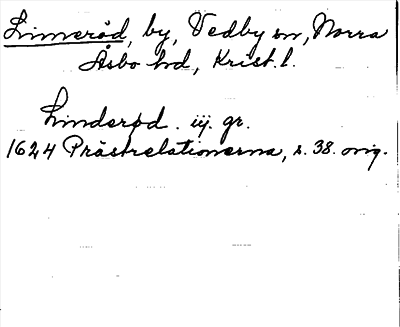 Linneröd, by, Vedby sn, Norra
Åsbo hd, Krist. l.
Linderød. iij. gr.
1624 Prästrelationerna, s. 38. orig.